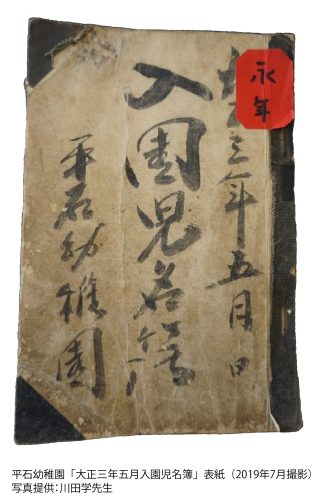 永年
大正三年五月日
入園児名簿
平石幼稚園
平石幼稚園「大正三年五月入園児名簿」表紙（2019年7月撮影）
写真提供：川田学先生